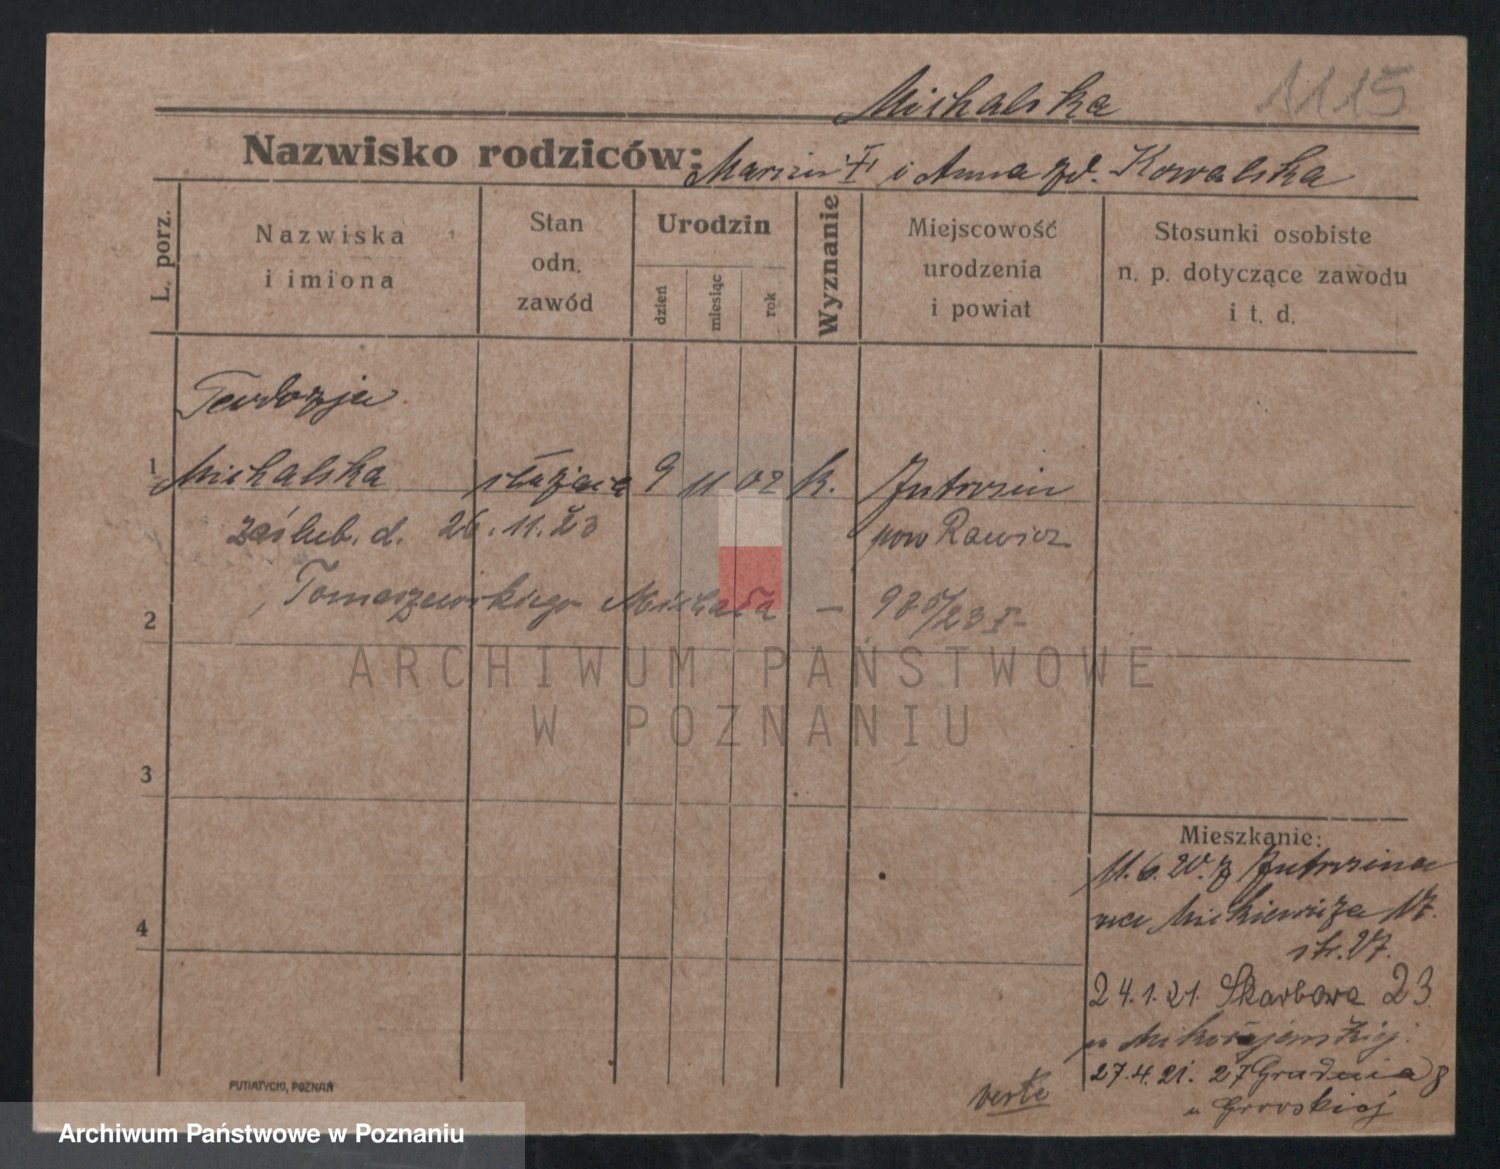 Michalska 1115
Nazwisko rodziców: Marcin † i Anna zd. Kowalska
L. porz.
Nazwiska
i imiona
Stan
odn.
zawód
Urodzin
dzień
miesiąc
rok
Wyznanie
Miejscowość
urodzenia
i powiat
Stosunki osobiste
n. p. dotyczące zawodu
i t. d.
Teodozja
1 Michalska służąca 9 11 02 k. Jutrosin
zaślub. d. 26.11.23 pow Rawicz
2 Tomaszewskiego Michała —
ARCHIWUM PAŃSTWOWE
W POZNANIU
3
4
Mieszkanie:
11.6.20. z Jutrosina
na Mickiewicza 17.
str. 27.
24.1.21. Skarbowa 23
u Mikołajewskiej.
27.4.21. 27 Grudnia 8
u Grocskiej
verte
PUTIATYCKI, POZNAŃ
Archiwum Państwowe w Poznaniu